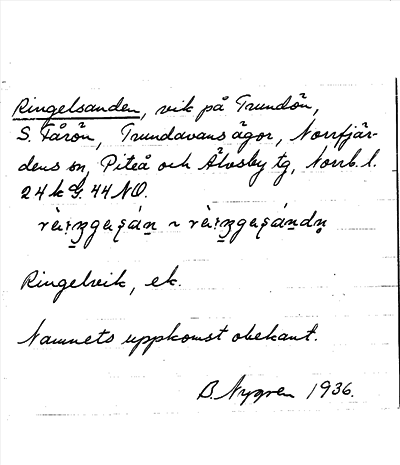 Ringelsanden, vik på Trundön,
S. Fårön, Trundavans ägor, Norrfjär-
dens sn, Piteå och Älvsby tg, Norrb. l.
24 k G. 44 NO.
Ringelvik, ek.
Namnets uppkomst obekant.
B. Nygren 1936.